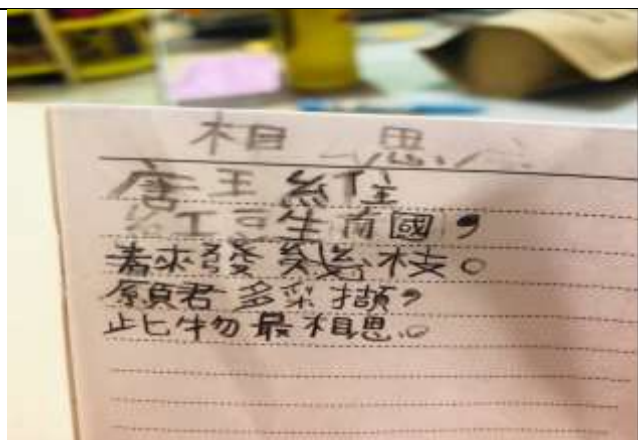 相思
唐王維
紅豆生南國，
春來發幾枝。
願君多采擷，
此物最相思。